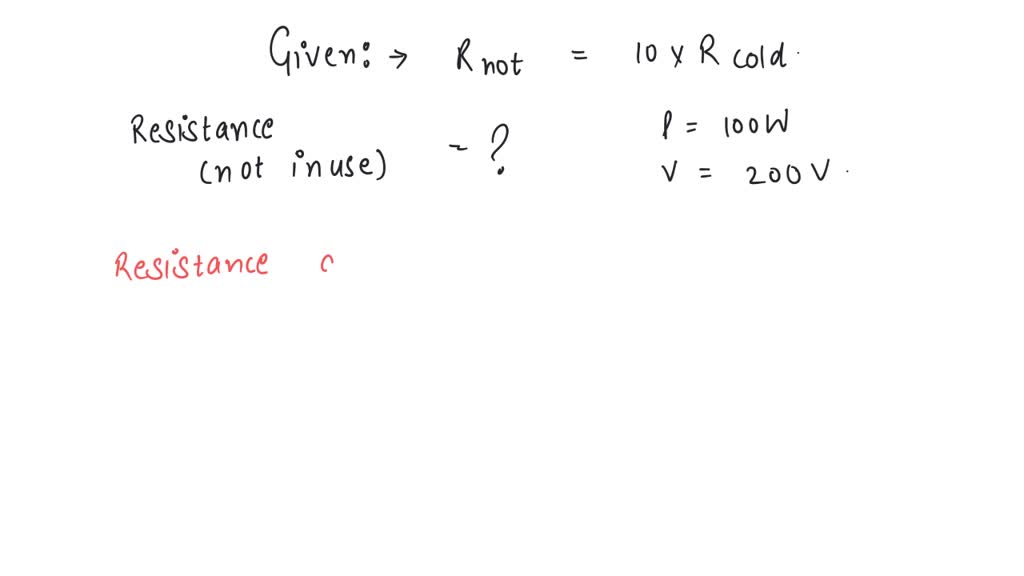 Given: → R not = 10 x R cold.
Resistance (not in use) - ?
P = 100W
V = 200 V.
Resistance